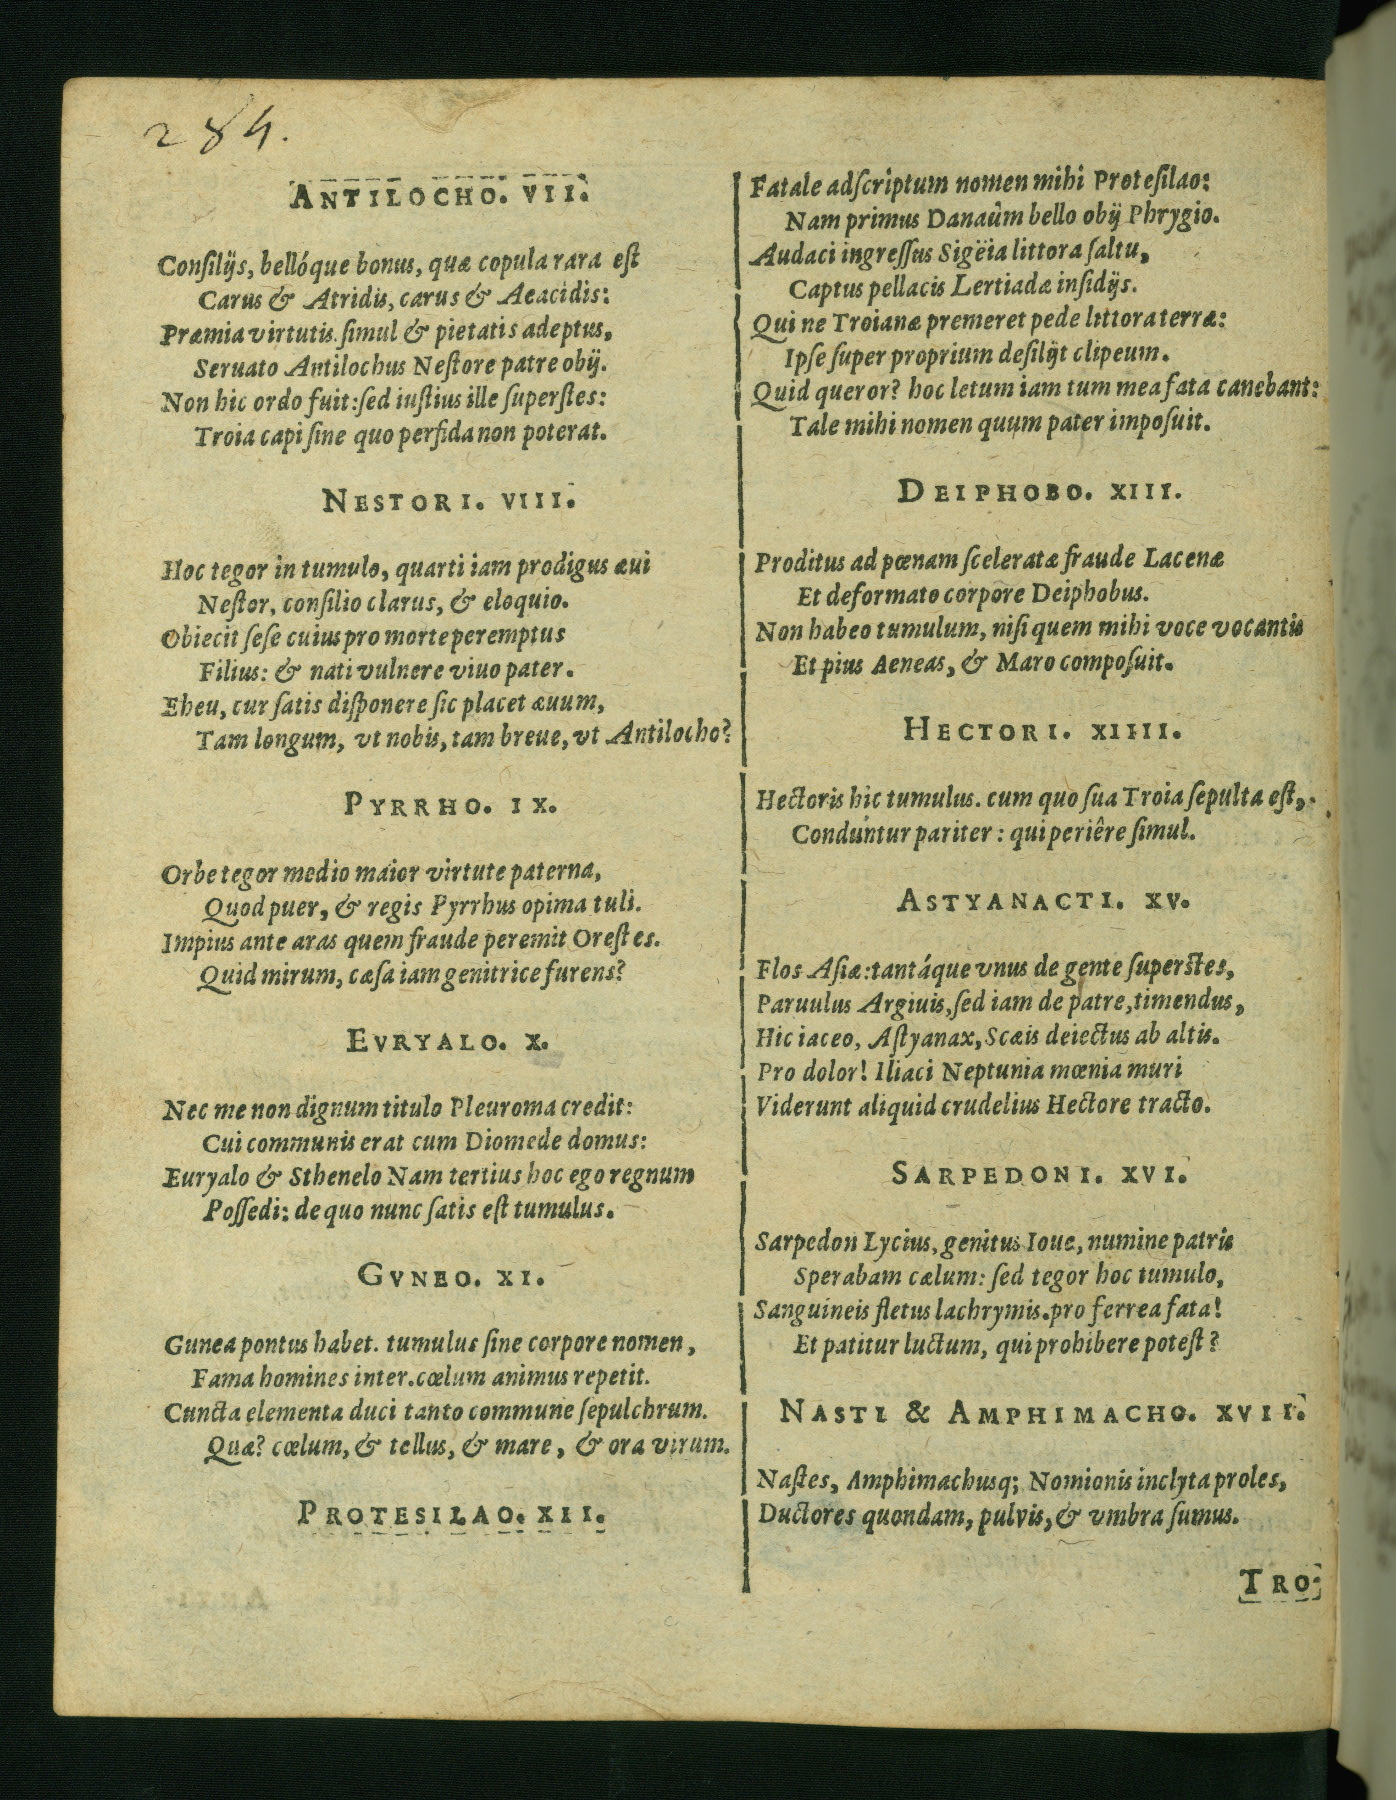 284.
ANTILOCHO. VII.
Conſilijs, bellóque bonus, quæ copula rara eſt
Carus & Atridis, carus & Aeacidis:
Præmia virtutis ſimul & pietatis adeptus,
Seruato Antilochus Neſtore patre obij.
Non hic ordo fuit: ſed iuſtius ille ſuperſtes:
Troia capi ſine quo perfida non poterat.
NESTORI. VIII.
Hoc tegor in tumulo, quarti iam prodigus æui
Neſtor, conſilio clarus, & eloquio.
Obiecit ſeſe cuius pro morte peremptus
Filius: & nati vulnere viuo pater.
Eheu, cur ſatis diſponere ſic placet æuum,
Tam longum, vt nobis, tam breue, vt Antilocho?
PYRRHO. IX.
Orbe tegor medio maior virtute paterna,
Quod puer, & regis Pyrrhus opima tuli.
Impius ante aras quem fraude peremit Oreſtes.
Quid mirum, cæſa iam genitrice furens?
EVRYALO. X.
Nec me non dignum titulo Pleuroma credit:
Cui communis erat cum Diomede domus:
Euryalo & Sthenelo Nam tertius hoc ego regnum
Poſſedi: de quo nunc ſatis eſt tumulus.
GVNEO. XI.
Gunea pontus habet. tumulus ſine corpore nomen,
Fama homines inter. cœlum animus repetit.
Cuncta elementa duci tanto commune ſepulchrum.
Quæ? cœlum, & tellus, & mare, & ora virum.
PROTESILAO. XII.
Fatale adſcriptum nomen mihi Proteſilao:
Nam primus Danaûm bello obij Phrygio.
Audaci ingreſſus Sigëia littora ſaltu,
Captus pellacis Lertiadæ inſidijs.
Qui ne Troianæ premeret pede littora terræ:
Ipſe ſuper proprium deſilijt clipeum.
Quid queror? hoc letum iam tum mea fata canebant:
Tale mihi nomen quum pater impoſuit.
DEIPHOBO. XIII.
Proditus ad pœnam ſceleratæ fraude Lacenæ
Et deformato corpore Deiphobus.
Non habeo tumulum, niſi quem mihi voce vocantis
Et pius Aeneas, & Maro compoſuit.
HECTORI. XIIII.
Hectoris hic tumulus. cum quo ſua Troia ſepulta eſt,
Conduntur pariter: qui periêre ſimul.
ASTYANACTI. XV.
Flos Aſiæ: tantáque vnus de gente ſuperſtes,
Paruulus Argiuis, ſed iam de patre, timendus,
Hic iaceo, Aſtyanax, Scæis deiectus ab altis.
Pro dolor! Iliaci Neptunia mœnia muri
Viderunt aliquid crudelius Hectore tracto.
SARPEDONI. XVI.
Sarpedon Lycius, genitus Ioue, numine patris
Sperabam cælum: ſed tegor hoc tumulo,
Sanguineis fletus lachrymis. pro ferrea fata!
Et patitur luctum, qui prohibere poteſt?
NASTI & AMPHIMACHO. XVII.
Naſtes, Amphimachusq; Nomionis inclyta proles,
Ductores quondam, pulvis, & vmbra ſumus.
TRO-